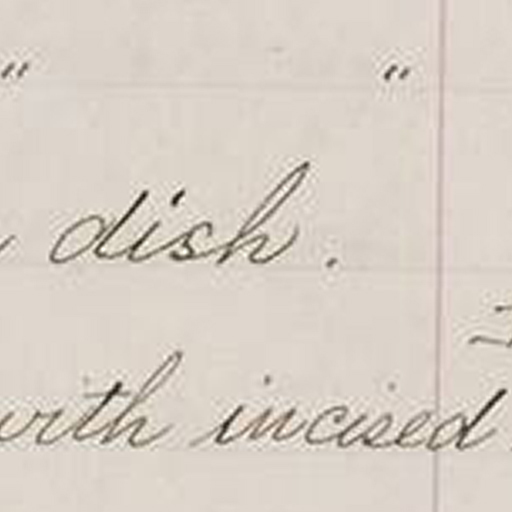 " "
dish.
with incised